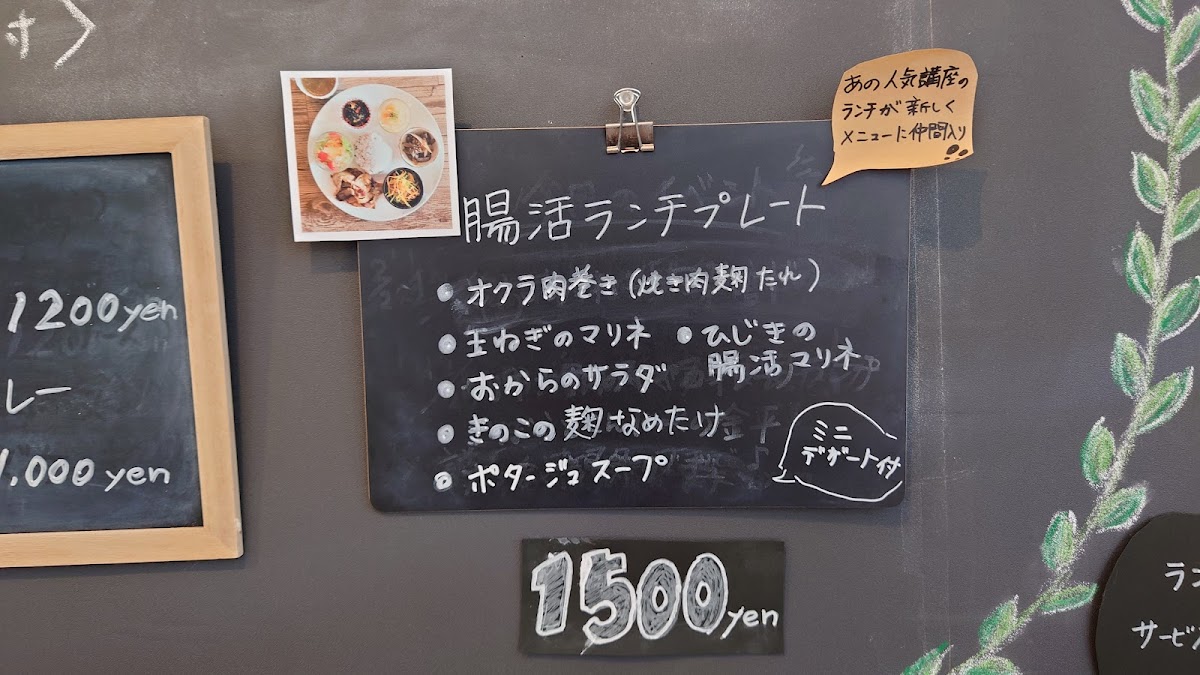 付〉
1200yen
レー
1.000 yen
あの人気講座の
ランチが新しく
メニューに仲間入り
腸活ランチプレート
・オクラ肉巻き(焼き肉麹たれ)
・玉ねぎのマリネ ・ひじきの
腸活マリネ
・おからのサラダ
・きのこの麹なめたけ
・ポタージュスープ
ミニ
デザート付
1500yen
サービス